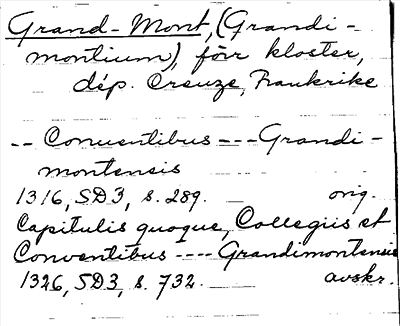 Grand-Mont, (Grandi-
montium), förr kloster,
dép. Creuze, Frankrike
-- Conventibus --- Grandi-
montensis
1316, SD3, s. 289. orig.
Capitulis quoque, Collegiis et
Conventibus ---- Grandimontensis
1326, SD3, s. 732. avskr.